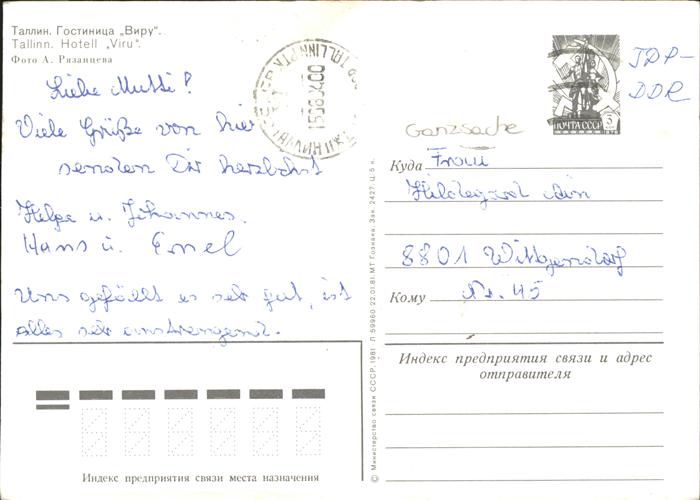 Таллин. Гостиница „Виру".
Tallinn. Hotell „Viru".
Фото А. Рязанцева
Liebe Mutti!
Viele Grüße von hier
senden Dir herzlichst
Helga u. Johannes.
Hans u. Emel
Uns gefällt es sehr gut, ist
alles sehr anstrengend.
TALLINN
ПОЧТА СССР
ГДР-
DDR
Ganzsache
Куда Frau
Hildegard
8801 Wittgendorf
Кому Nr. 45
Индекс предприятия связи и адрес
отправителя
Индекс предприятия связи места назначения
© Министерство связи СССР, 1981 Л-59960 22.01.81. МТ Гознака. Зак. 2427. Ц. 5 к.